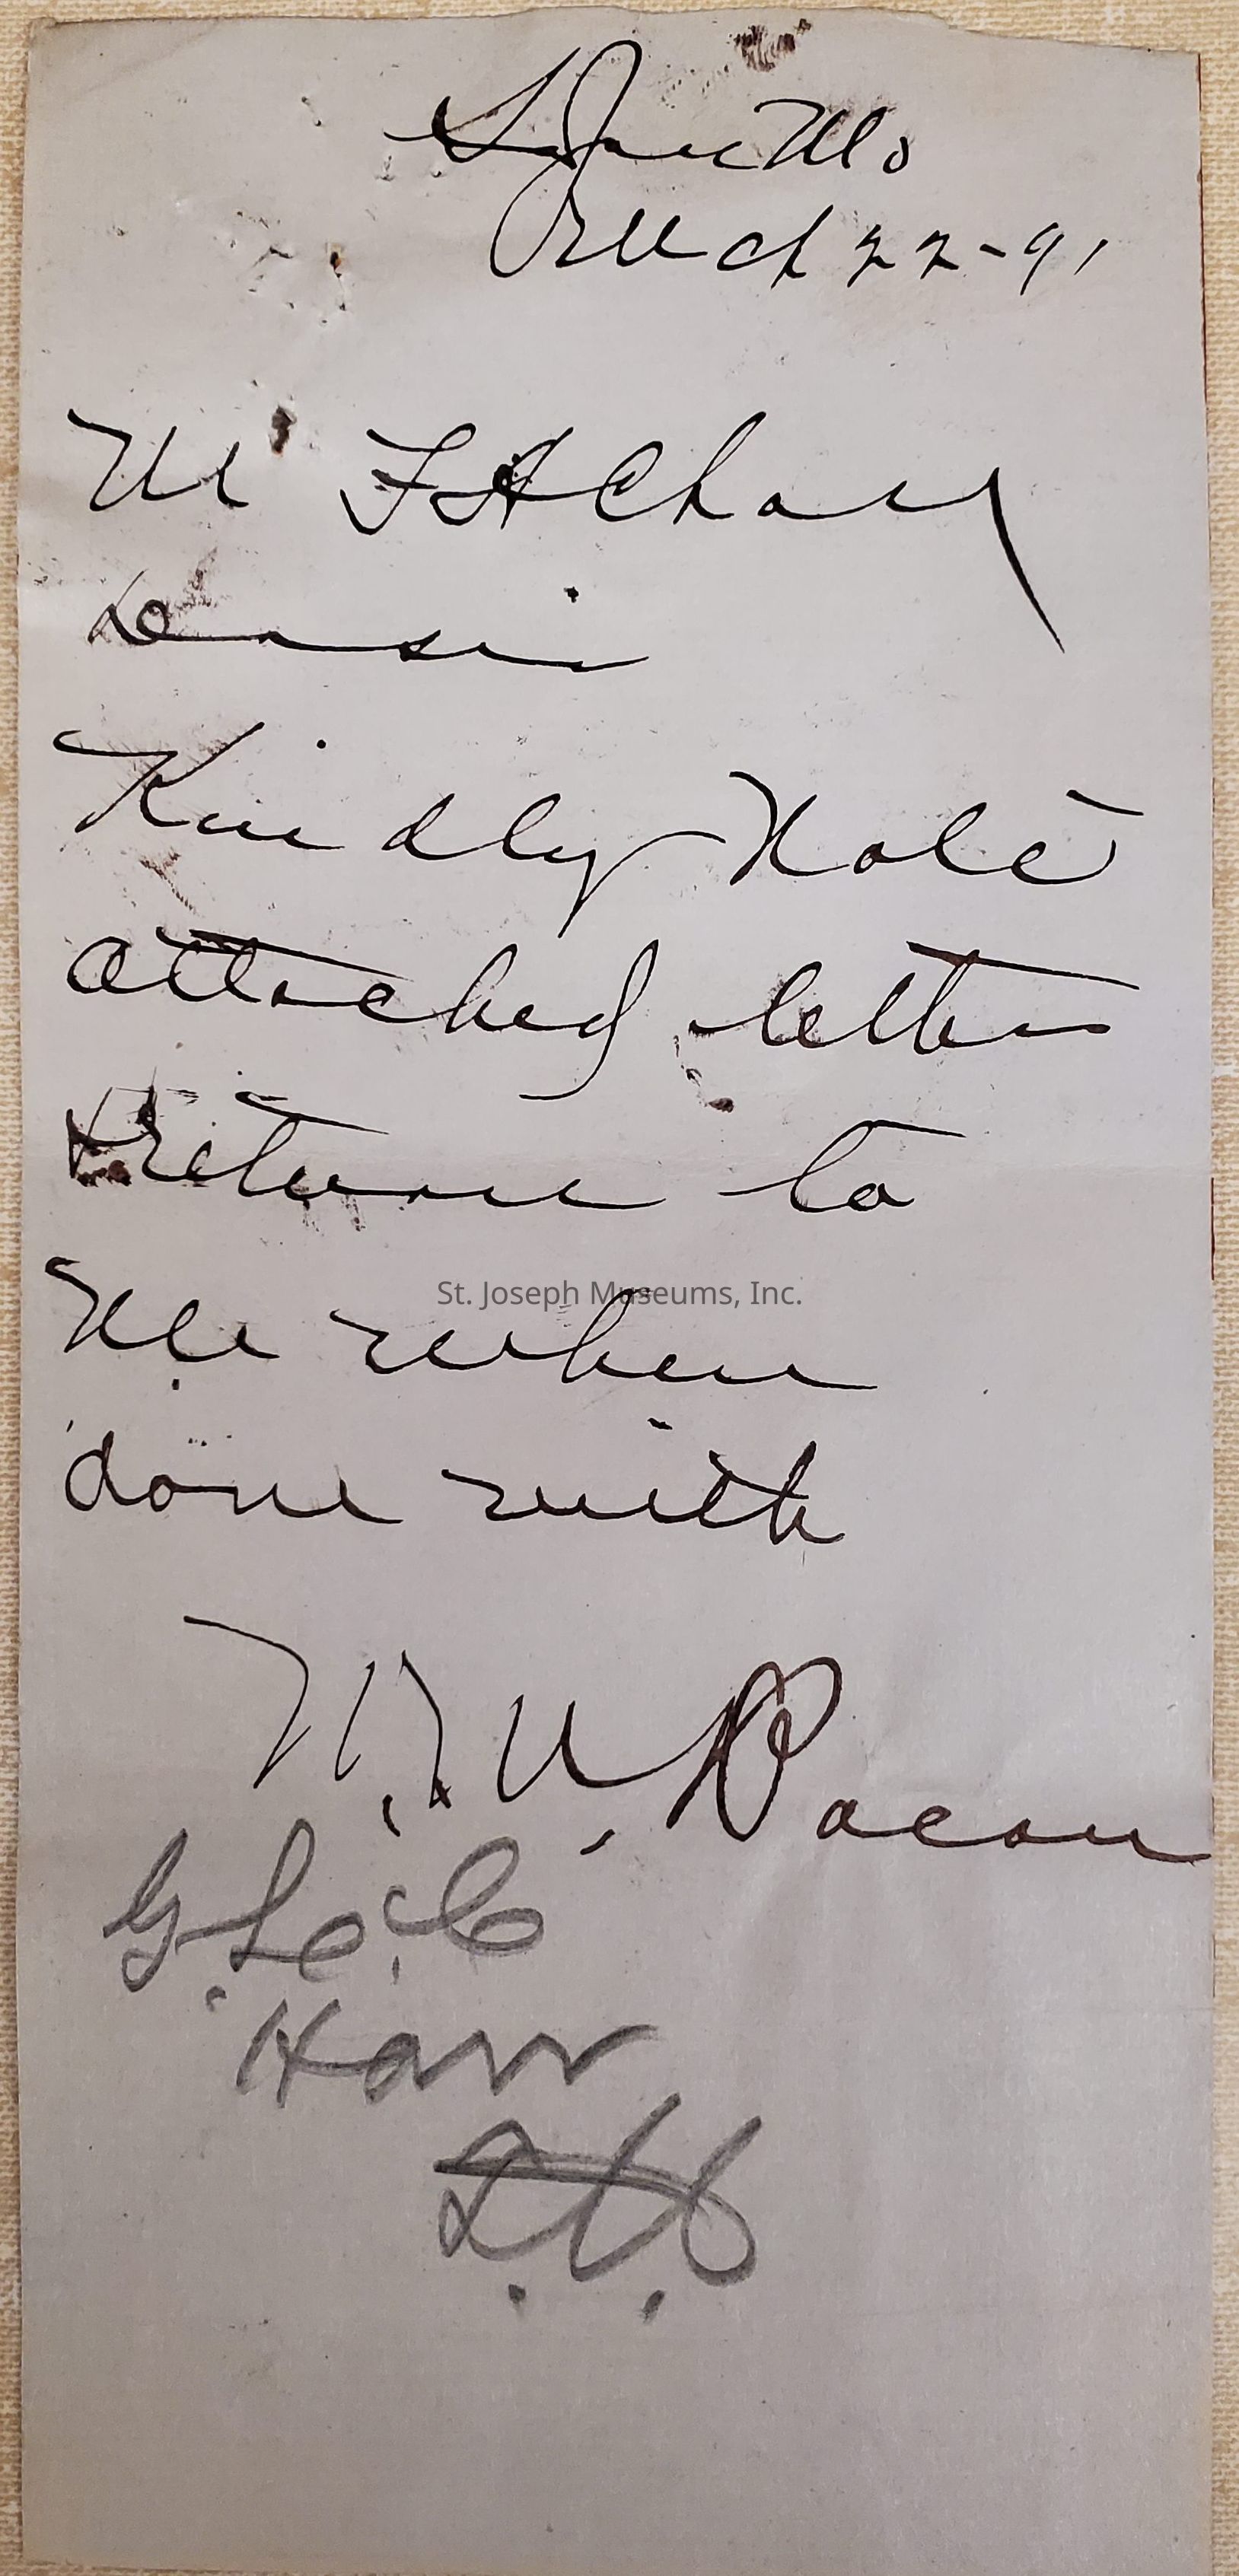 St Joe Mo
Mch 22-91
Mr F A
Dear Sir
Kindly Note
attached letter
& return to
Me when
done with
W. U. Bacon
St. Joseph Museums, Inc.